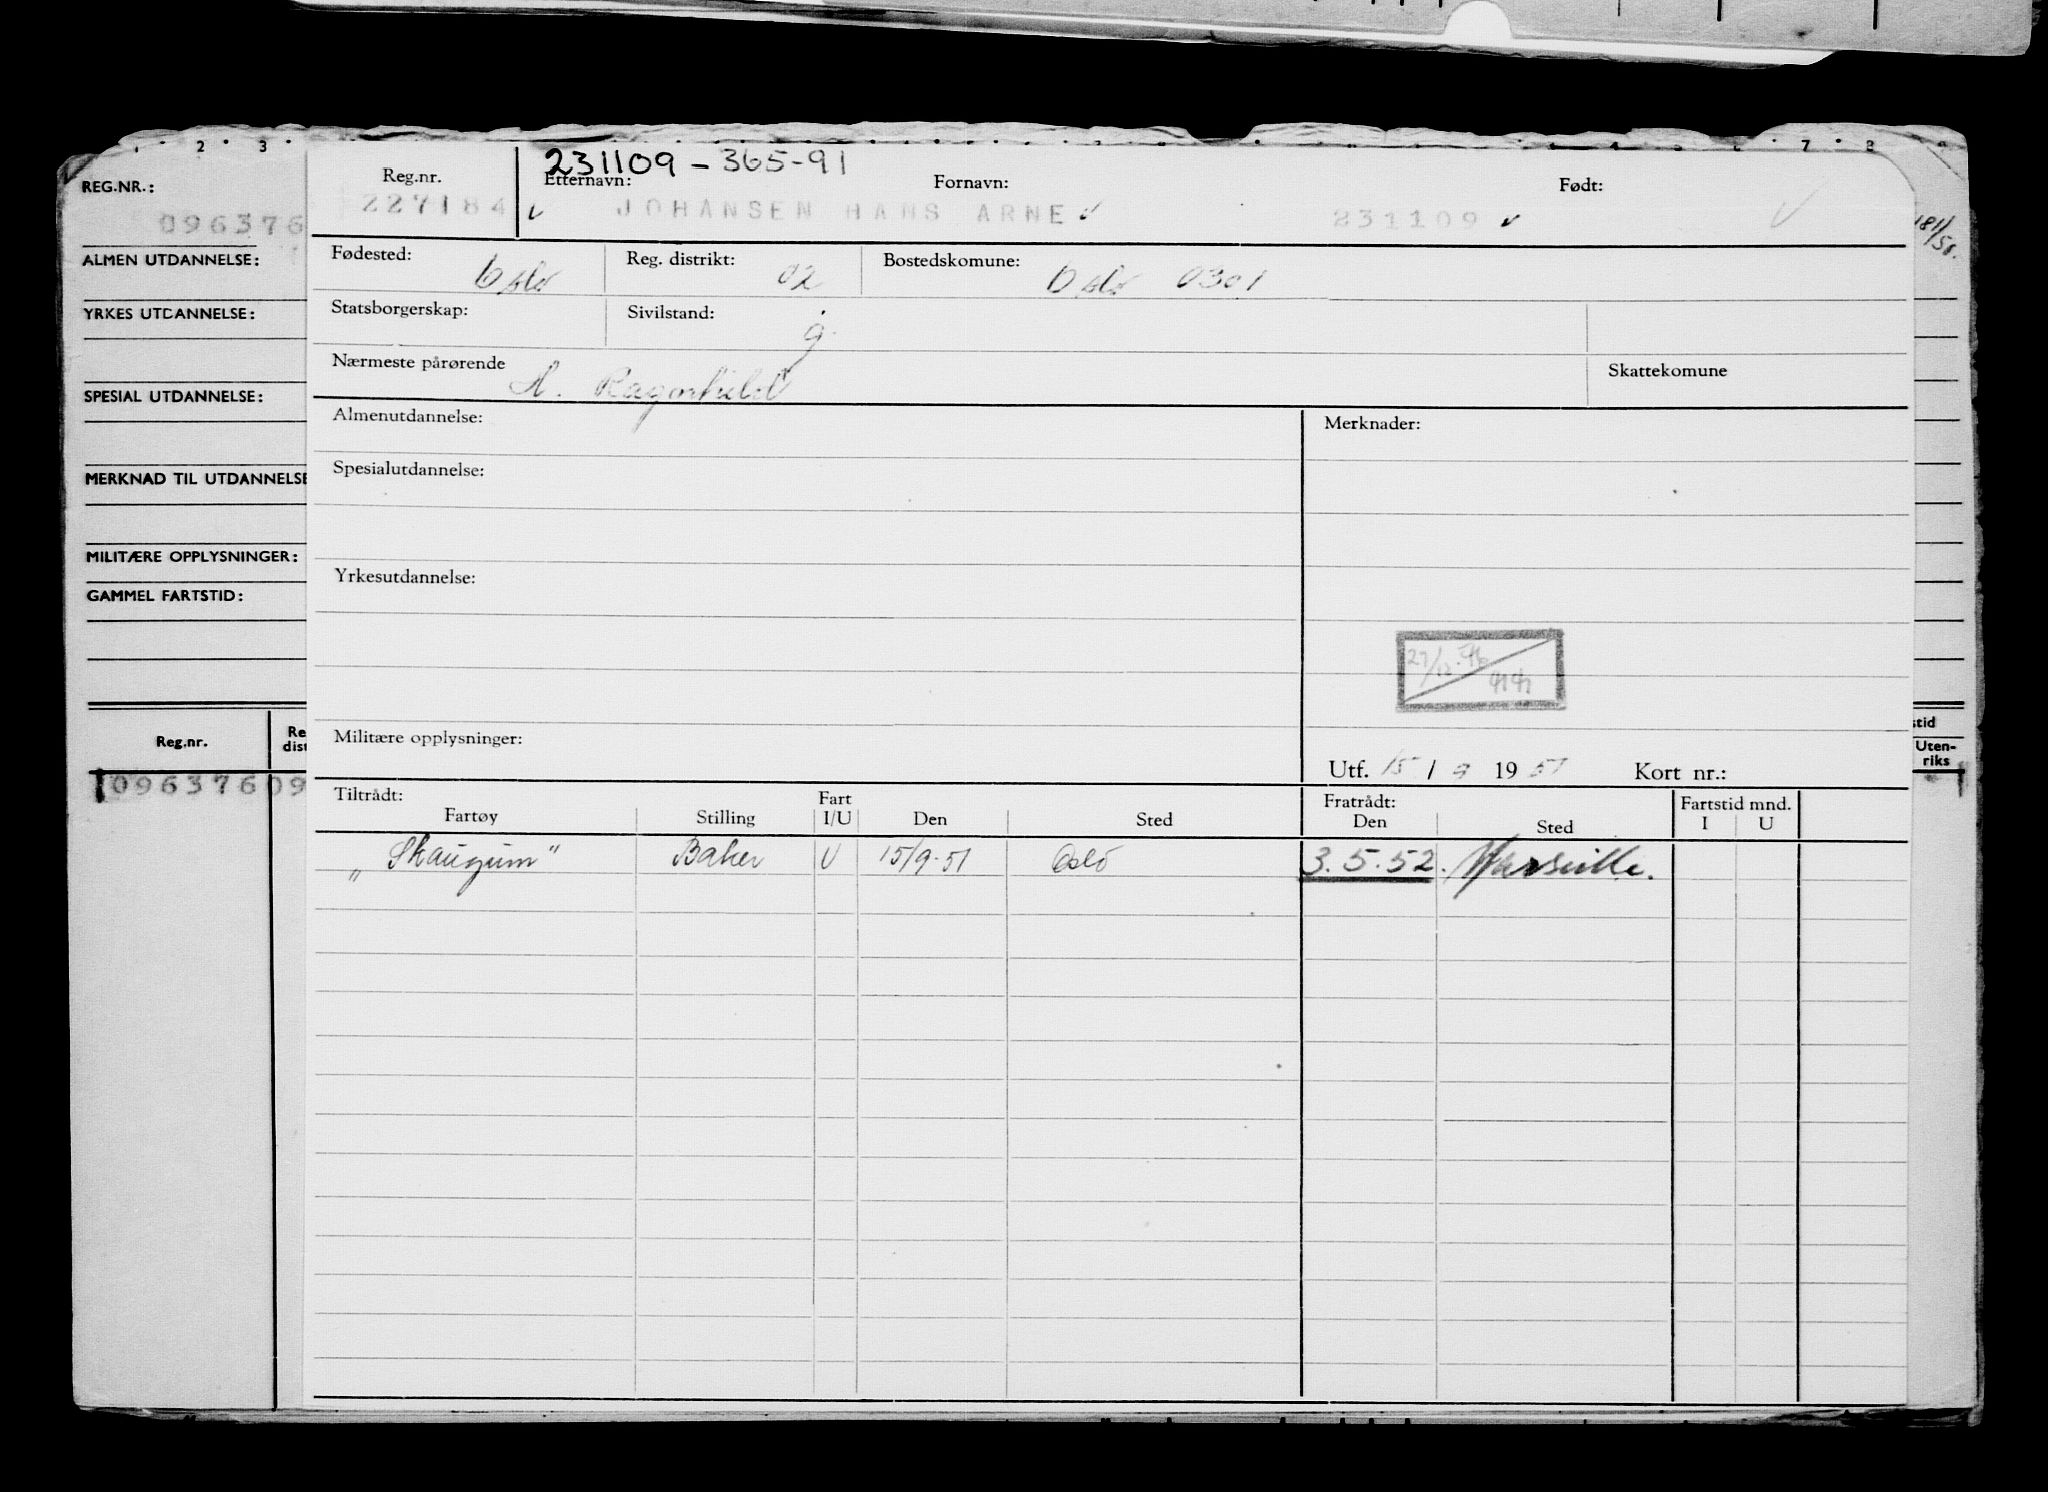 1 · 2 · 3 ·
7 · 8
REG.NR.:
096376
ALMEN UTDANNELSE:
YRKES UTDANNELSE:
SPESIAL UTDANNELSE:
MERKNAD TIL UTDANNELSE
MILITÆRE OPPLYSNINGER:
GAMMEL FARTSTID:
Reg.nr. Re dist
09637609
231109 - 365-91
Reg.nr. Etternavn: Fornavn: Født:
227184 JOHANSEN HANS ARNE 231109
Fødested: Oslo Reg. distrikt: 02 Bostedskomune: Oslo 0301
Statsborgerskap: Sivilstand: g.
Nærmeste pårørende A. Ragnhild Skattekomune
Almenutdannelse: Merknader:
Spesialutdannelse:
Yrkesutdannelse:
27/12.46
Militære opplysninger:
Utf. 15/9 1951 Kort nr.:
Tiltrådt: Fratrådt: Fartstid mnd.
Fartøy Stilling Fart I/U Den Sted Den Sted I U
„Skaugum" Baker U 15/9-51 Oslo 3.5.52. Marseille.
stid
Uten-
riks